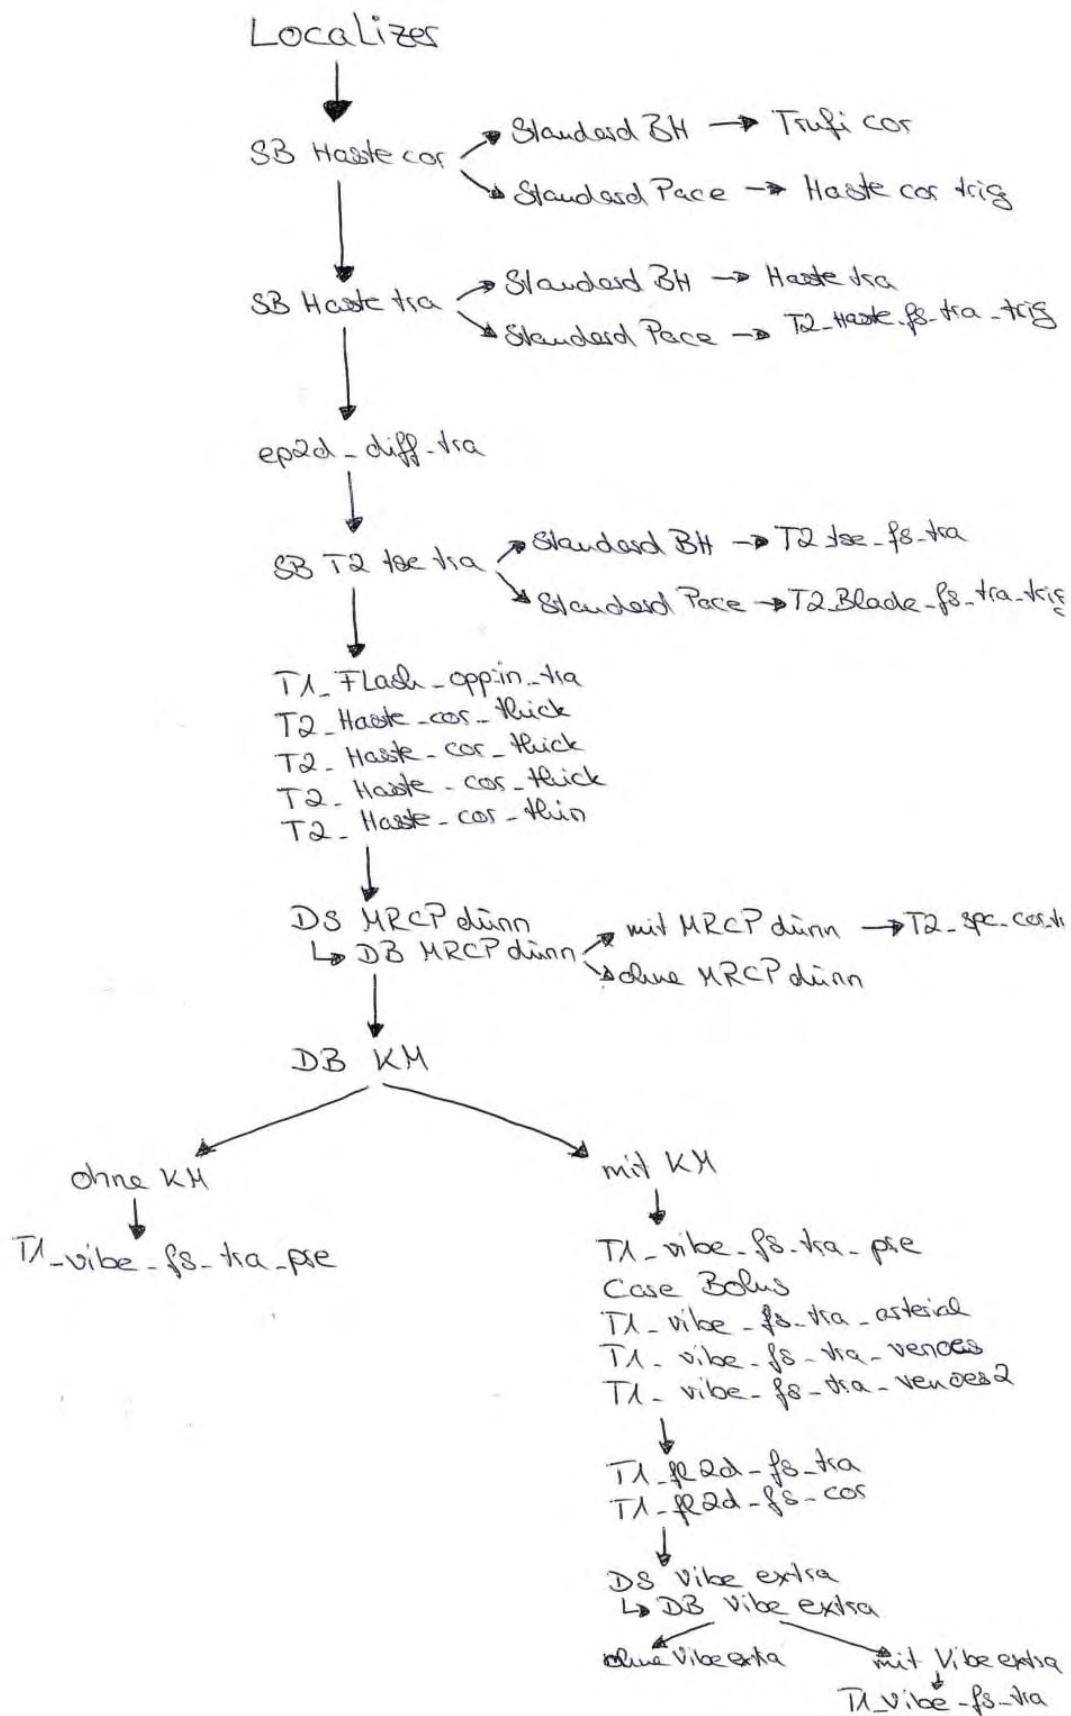 Localizer
SB Haste cor
Standard BH → Trufi cor
Standard Pace → Haste cor trig
SB Haste tra
Standard BH → Haste tra
Standard Pace → T2_Haste_fs_tra_trig
ep2d_diff_tra
SB T2 tse tra
Standard BH → T2_tse_fs_tra
Standard Pace → T2_Blade_fs_tra_trig
T1_Flash_opp-in_tra
T2_Haste_cor_thick
T2_Haste_cor_thick
T2_Haste_cor_thick
T2_Haste_cor_thin
DS MRCP dünn
↳ DB MRCP dünn
mit MRCP dünn → T2_spc_cor_ti
ohne MRCP dünn
DB KM
ohne KM
T1_vibe_fs_tra_pre
mit KM
T1_vibe_fs_tra_pre
Care Bolus
T1_vibe_fs_tra_arterial
T1_vibe_fs_tra_venoes
T1_vibe_fs_tra_venoes2
T1_fl2d_fs_tra
T1_fl2d_fs_cor
DS Vibe extra
↳ DB Vibe extra
ohne Vibe extra
mit Vibe extra
T1_Vibe_fs_tra